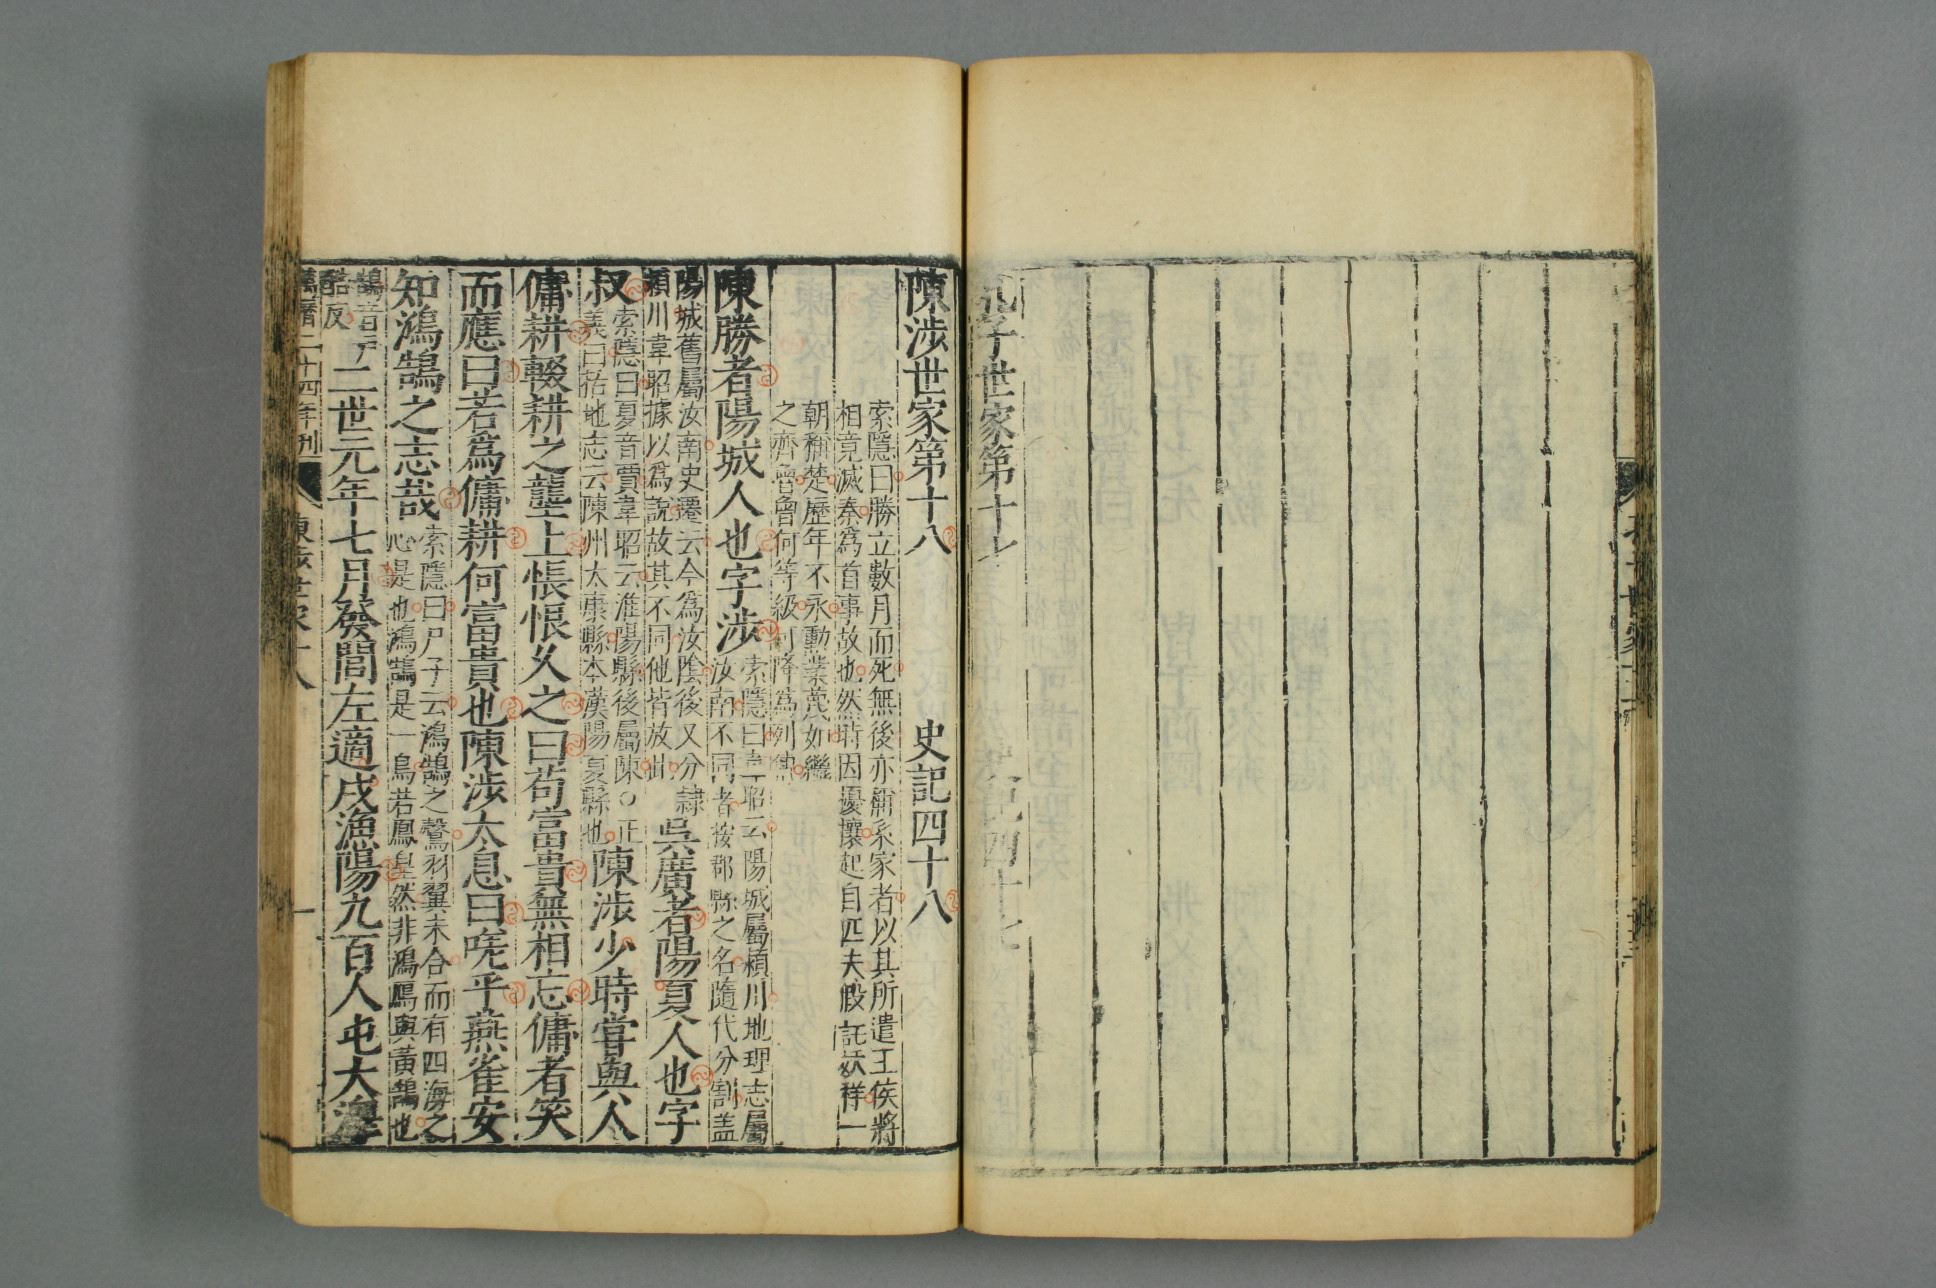 孔子世家十七
孔子世家第十七 史記四十七
陳涉世家第十八 史記四十八
索隱曰勝立數月而死無後亦稱系家者以其所遣王侯將
相竟滅秦爲首事故也然時因擾攘起自匹夫假託妖祥一
朝稱楚歷年不永勳業蔑如繼
之齊魯曾何等級可降爲列傳
陳勝者陽城人也字涉
索隱曰韋昭云陽城屬潁川地理志屬
汝南不同者按郡縣之名隨代分割盖
陽城舊屬汝南史遷云今爲汝陰後又分隸
潁川韋昭據以爲說故其不同他皆放此
吳廣者陽夏人也字
叔
索隱曰夏音賈韋昭云淮陽縣後屬陳○正
義曰括地志云陳州太康縣本漢陽夏縣也
陳涉少時甞與人
傭耕輟耕之壟上悵恨久之曰苟富貴無相忘傭者笑
而應曰若爲傭耕何富貴也陳涉太息曰嗟乎燕雀安
知鴻鵠之志哉
索隱曰尸子云鴻鵠之鷇羽翼未合而有四海之
心是也鴻鵠是一鳥若鳳皇然非鴻鴈與黃鵠也
鵠音戶
酷反
二世元年七月發閭左適戍漁陽九百人屯大澤
萬曆二十四年刊 陳涉世家十八 一